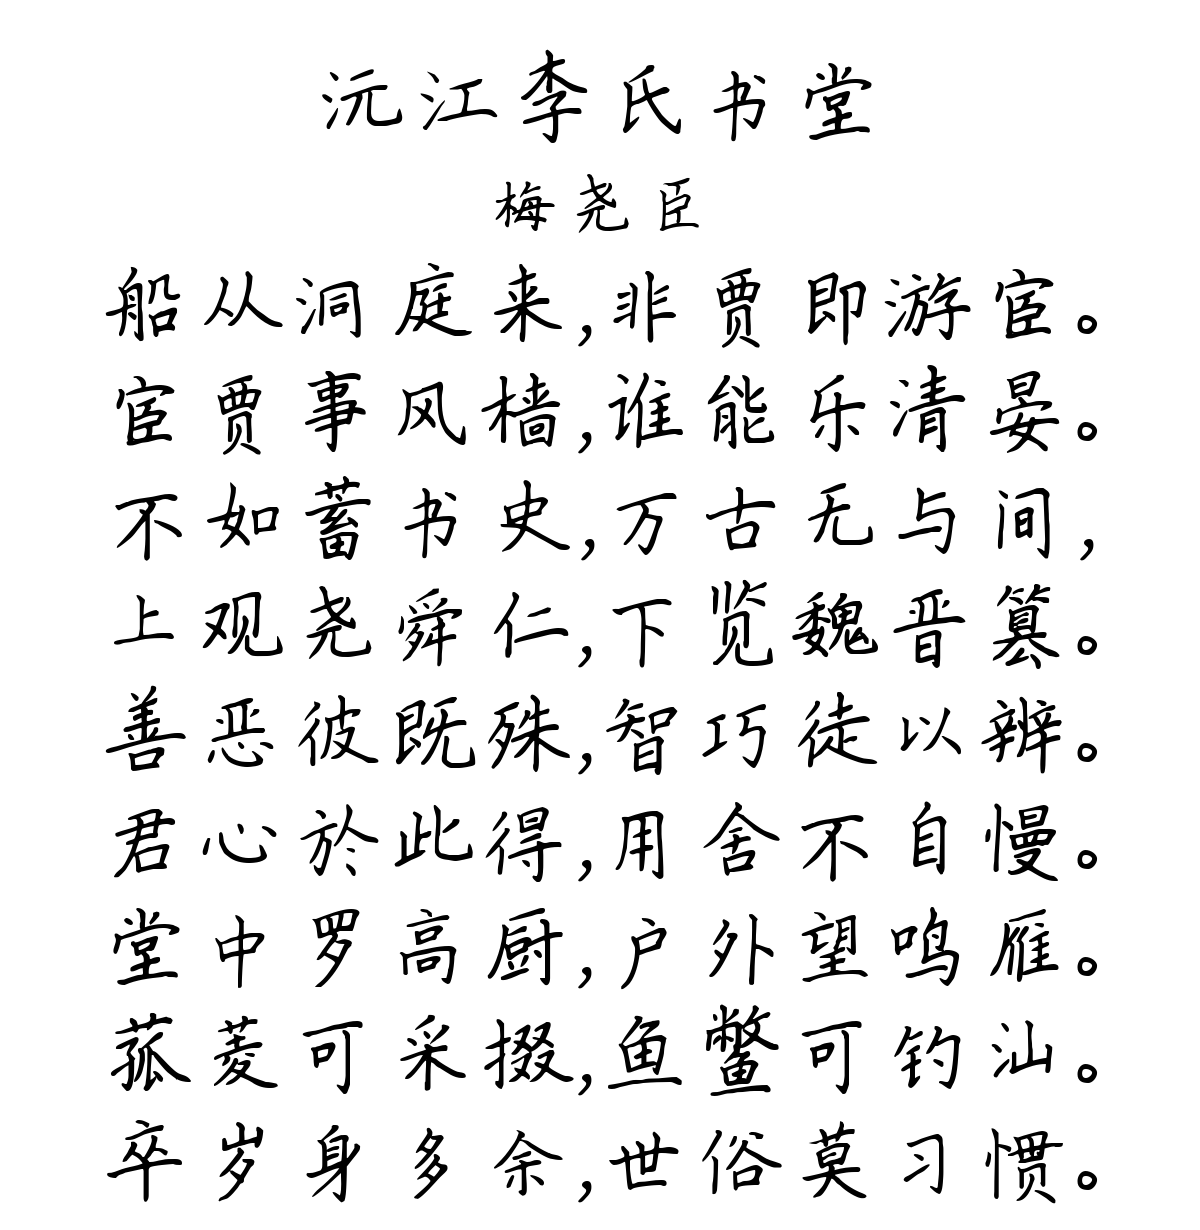 沅江李氏书堂
梅尧臣
船从洞庭来,非贾即游宦。
宦贾事风樯,谁能乐清晏。
不如蓄书史,万古无与间,
上观尧舜仁,下览魏晋篡。
善恶彼既殊,智巧徒以辨。
君心於此得,用舍不自慢。
堂中罗高厨,户外望鸣雁。
菰菱可采掇,鱼鳖可钓汕。
卒岁身多余,世俗莫习惯。